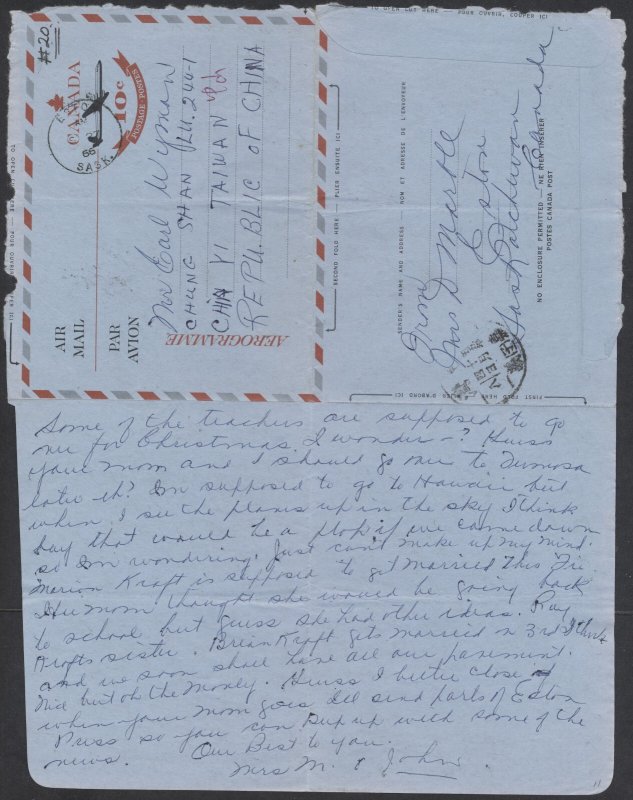 #20
CANADA
10¢
POSTAGE · POSTES
SASK.
AIR
MAIL
PAR
AVION
AEROGRAMME
Mr Earl Wyman
CHUNG SHAN RU. 244-1
CHIA YI TAIWAN
REPUBLIC OF CHINA
TO OPEN CUT HERE — POUR OUVRIR, COUPER ICI
SECOND FOLD HERE — PLIER ENSUITE ICI
SENDER'S NAME AND ADDRESS — NOM ET ADRESSE DE L'ENVOYEUR
From
Mrs D Markle
Eston
Saskatchewan
Canada
NO ENCLOSURE PERMITTED — NE RIEN INSÉRER
POSTES CANADA POST
FIRST FOLD HERE
D'ABORD ICI
Some of the teachers are supposed to go
over for Christmas I wonder —? Guess
your mom and I should go over to Formosa
later eh? Im supposed to go to Hawaii but
when I see the planes up in the sky I think
boy that would be a plop if we came down
so Im wondering. Just can't make up my mind.
Marion Kraft is supposed to get married this Fri.
Her Mom thought she would be going back
to school but guess she had other ideas. Ray
Krafts sister. Brian Kraft gets married on 3rd I think
and we soon shall have all our pavement.
Nice but oh the money. Guess I better close &
when your mom goes Ill send parts of Eston
Press so you can pep up with some of the
news. Our Best to you.
Mrs M. & John.